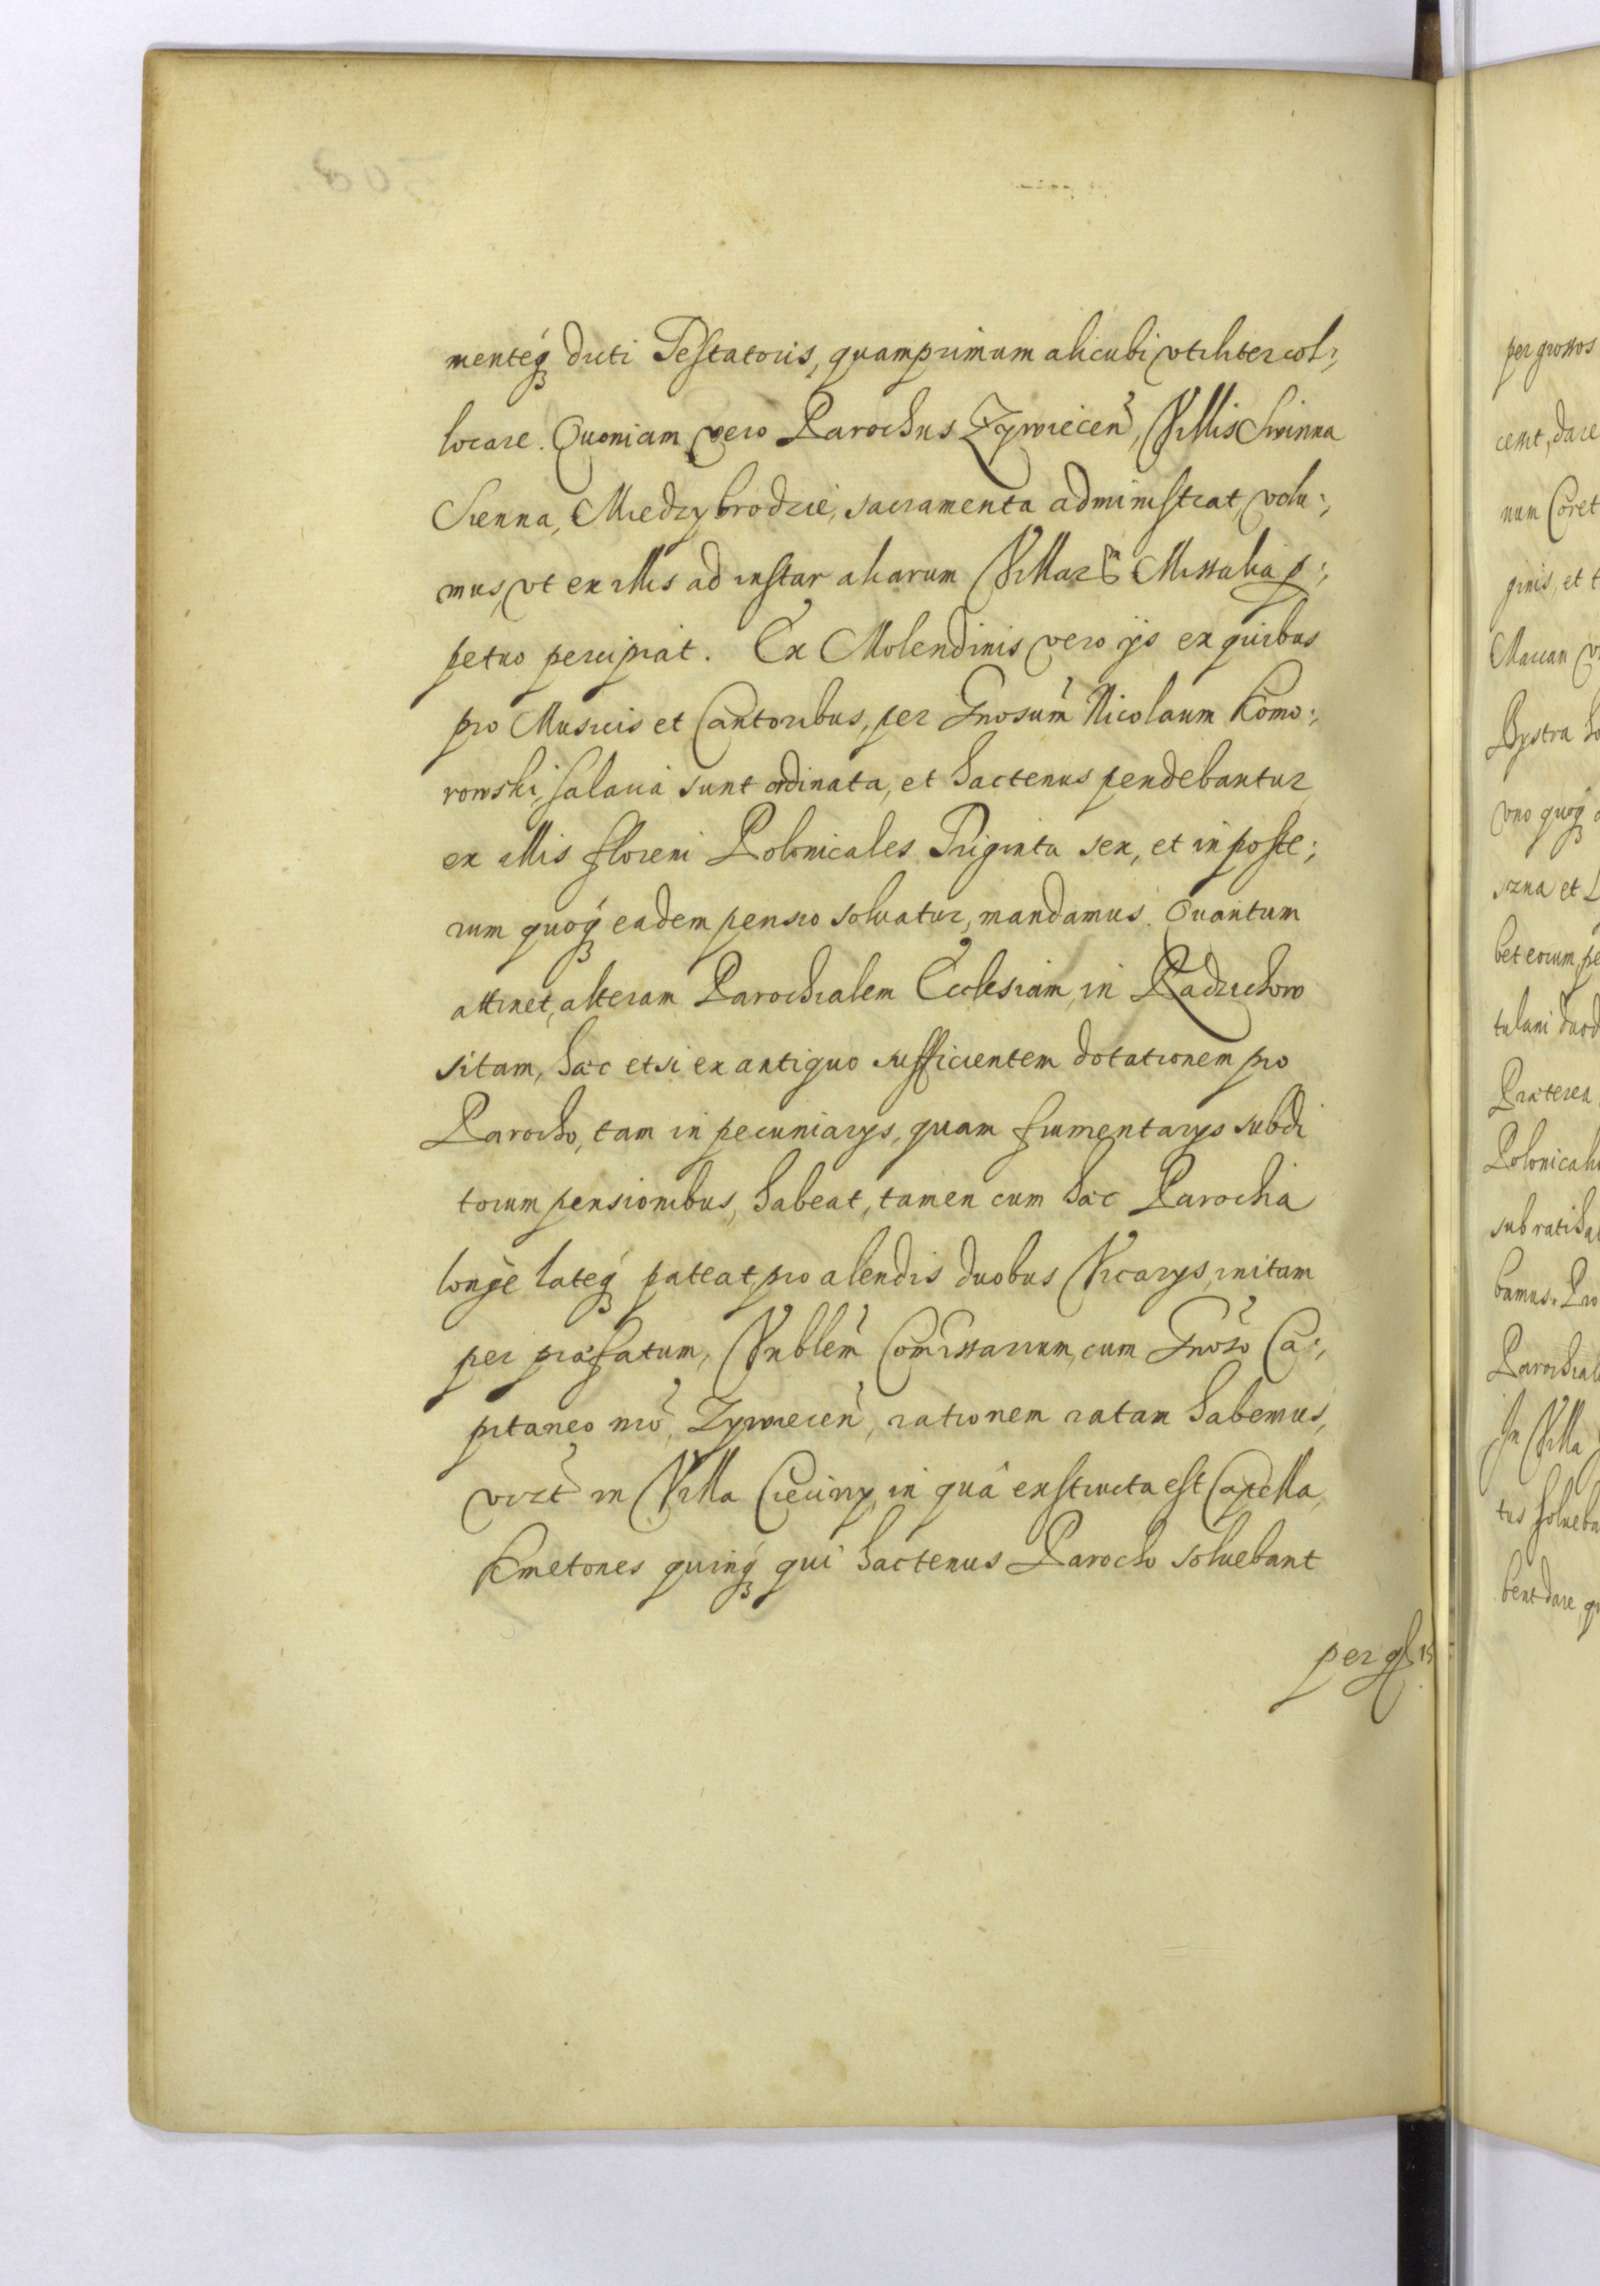 menteq́ꝫ dicti Testatoris, quamprimum alicubi vtiliter col:,
locare. Quoniam vero Parochus Zywiecen̄, Villis Swinna
Sienna, Miedzybrodzie, sacramenta administrat, volu:,
mus, vt ex illis ad instar aliarum Villarꝝ Missalia p:,
petuo percipiat. Ex Molendinis vero ijs ex quibus
pro Musicis et Cantoribus, per Gnosum̄ Nicolaum Komo:,
rowski, salaria sunt ordinata, et hactenus pendebantur
ex illis floreni Polonicales Triginta sex, et in poste:,
rum quoq́ꝫ eadem pensio soluatur, mandamus. Quantum
attinet, alteram Parochialem Ecclesiam, in Radziechow
sitam, hæc etsi ex antiquo sufficientem dotationem pro
Parocho, tam in pecuniarys, quam frumentarys subdi
torum pensionibus, habeat, tamen cum hæc Parochia
longè lateq́ꝫ pateat, pro alendis duobus Vicarys, initam
per præfatum, Vnblem̄ Com̄issarium, cum Gnoso̅ Ca:,
pitaneo nr̄o, Zywiecen̄, rationem ratam habemus,
vizt̄ in Villa Cieciny, in quâ exstructa est Capella,
Kmetones quinq́ꝫ qui hactenus Parocho soluebant
per gs 15
per grossos
cent, dare
num Coret
ginis, et t
Maccan
Bystra
vno quoq́ꝫ
et
bet eorum
Præterea
Polonical
sub ratiha
bamus. Pro
Parochial
In Villa
tus solueba
bent dare,